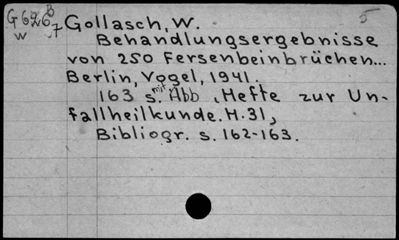 G626B Gollasch, W. 5
w 57
Behandlungsergebnisse
von 250 Fersenbeinbrüchen...
Berlin, Vogel, 1941.
163 s. mit Abb., Hefte zur Un-
fallheilkunde. H. 31,
Bibliogr. s. 162-163.